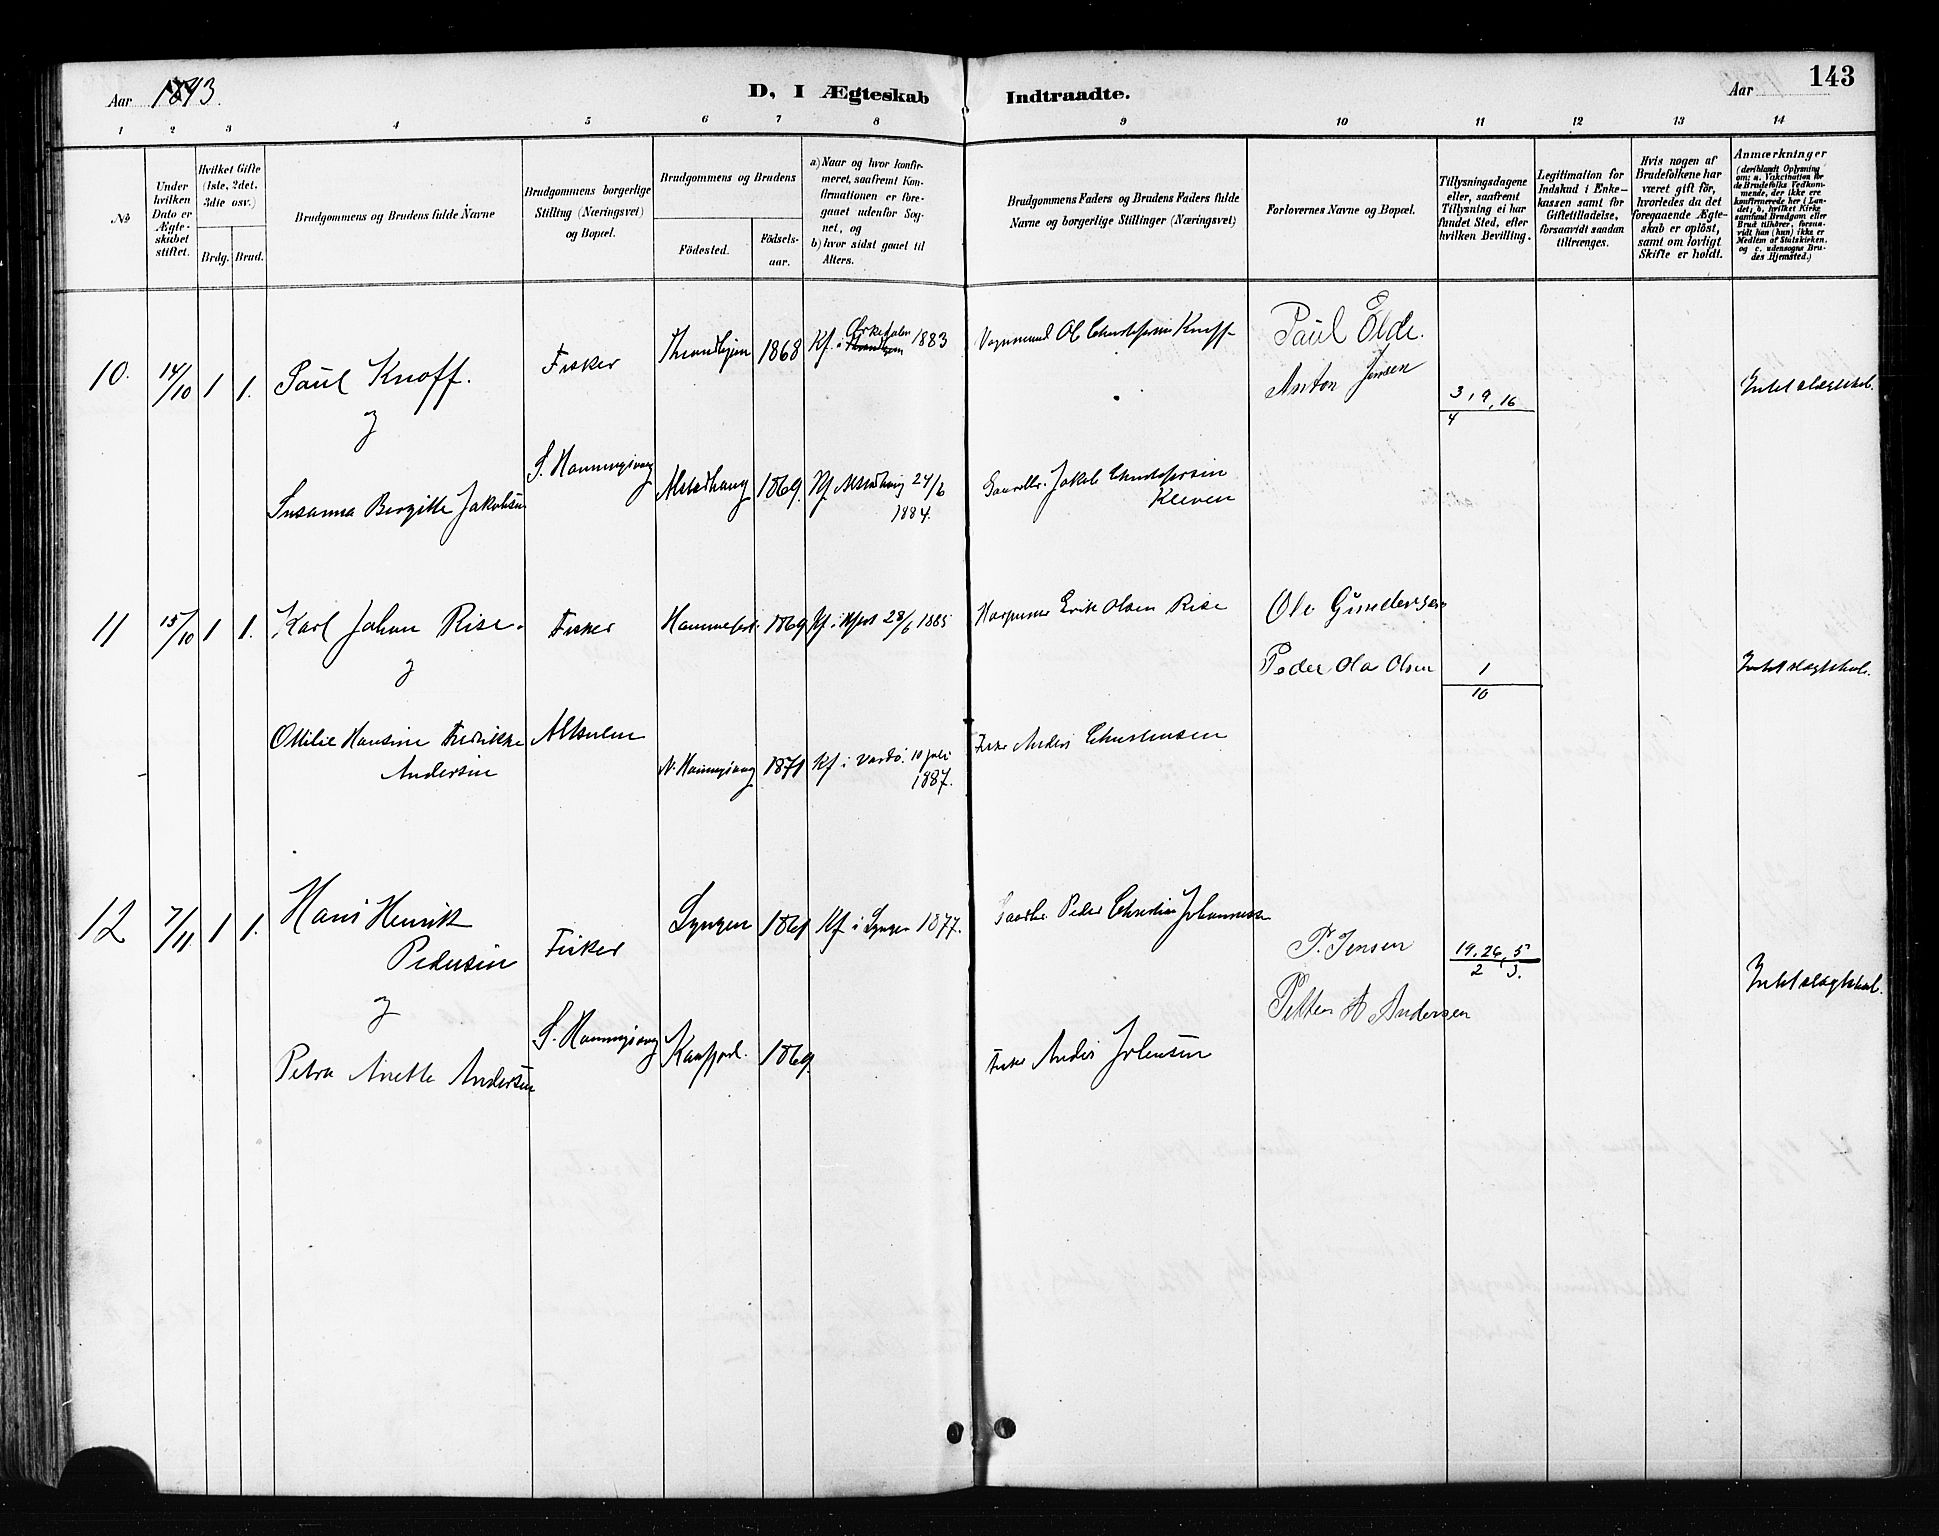 Aar 1893.
D, I Ægteskab Indtraadte.
Aar
143
1 2 3 4 5 6 7 8 9 10 11 12 13 14
No
Under hvilken Dato er Ægteskabet stiftet.
Hvilket Gifte (1ste, 2det, 3die osv.)
Brdg. Brud.
Brudgommens og Brudens fulde Navne
Brudgommens borgerlige Stilling (Næringsvei) og Bopæl.
Brudgommens og Brudens
Födested.
Födsels-aar.
a) Naar og hvor konfirmeret, saafremt Konfirmationen er foregaaet udenfor Sognet, og
b) hvor sidst gaaet til Alters.
Brudgommens Faders og Brudens Faders fulde Navne og borgerlige Stillinger (Næringsvei)
Forlovernes Navne og Bopæl.
Tillysningsdagene eller, saafremt Tillysning ei har fundet Sted, efter hvilken Bevilling.
Legitimation for Indskud i Enkekassen samt for Giftetilladelse, forsaavidt saadan tiltrænges.
Hvis nogen af Brudefolkene har været gift för, hvorledes da det foregaaende Ægteskab er oplöst, samt om lovligt Skifte er holdt.
Anmærkninger (deriblandt Oplysning om: a. Vakcination för de Brudefolks Vedkommende, der ikke ere konfirmerede her i Landet; b. hvilket Kirkesamfund Brudgom eller Brud tilhörer, forsaavidt han (hun) ikke er Medlem af Statskirken, og c. udensogns Brudes Hjemsted.)
10. 14/10 1 1. Paul Knoff. Fisker Throndhjem 1868 Kf. i 1883 Knoff Paul Elde.
Anton Jensen 3, 9, 16 / 4
og
S. Honningsvaag
Susanna Bergitte Jakobsen Alstadhaug 1869. Kf Alstadhaug 24/6 1884. Jakob Christofersen Kleven
11 15/10 1 1. Karl Johan Rise. Fisker Hammerfest. 1869 Kf. i Hfest 28/6 1885 Erik Olsen Rise Ole Gundersen
og
Peder Ola Olsen 1/10
Ottilie Hansine Fredrikke Andersen N. Honningsvaag 1871 Kf. i Vardö. 10 juli 1887. Anders Christensen
12 7/11 1 1. Hans Henrik Pedersen Fisker Lyngen 1861 Kf i Lyngen 1877. Peder Christian Johannessen
P. Jensen 19, 26, 5 / 2 3.
og
Petter A Andersen
S. Honningsvaag
Petra Anette Andersen Kaafjord. 1869. Anders Johnsen